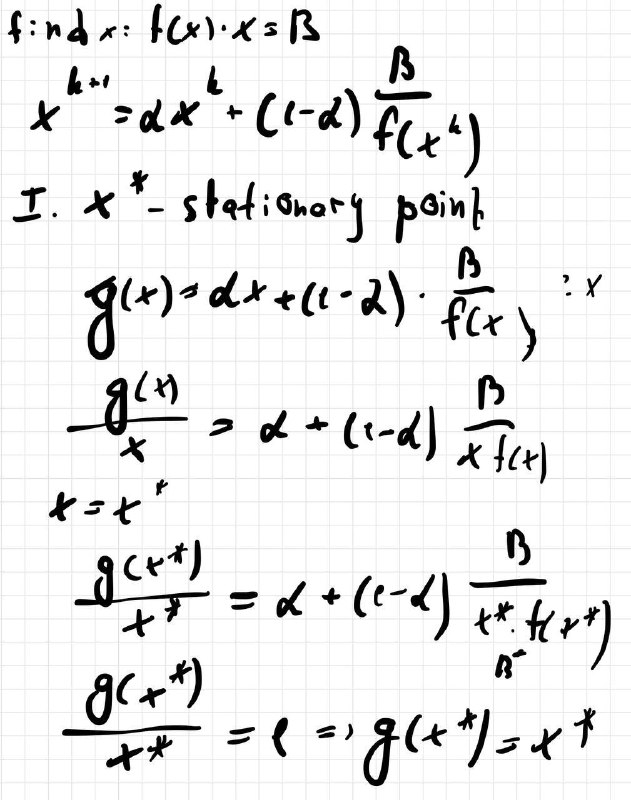 find x: f(x)·x = B
x^{k+1} = αx^k + (1-α) B/f(x^k)
I. x* - stationary point
g(x) = αx + (1-α) · B/f(x) :x
g(x)/x = α + (1-α) B/(x f(x))
x = x*
g(x*)/x* = α + (1-α) B/(x*·f(x*))
g(x*)/x* = 1 => g(x*) = x*